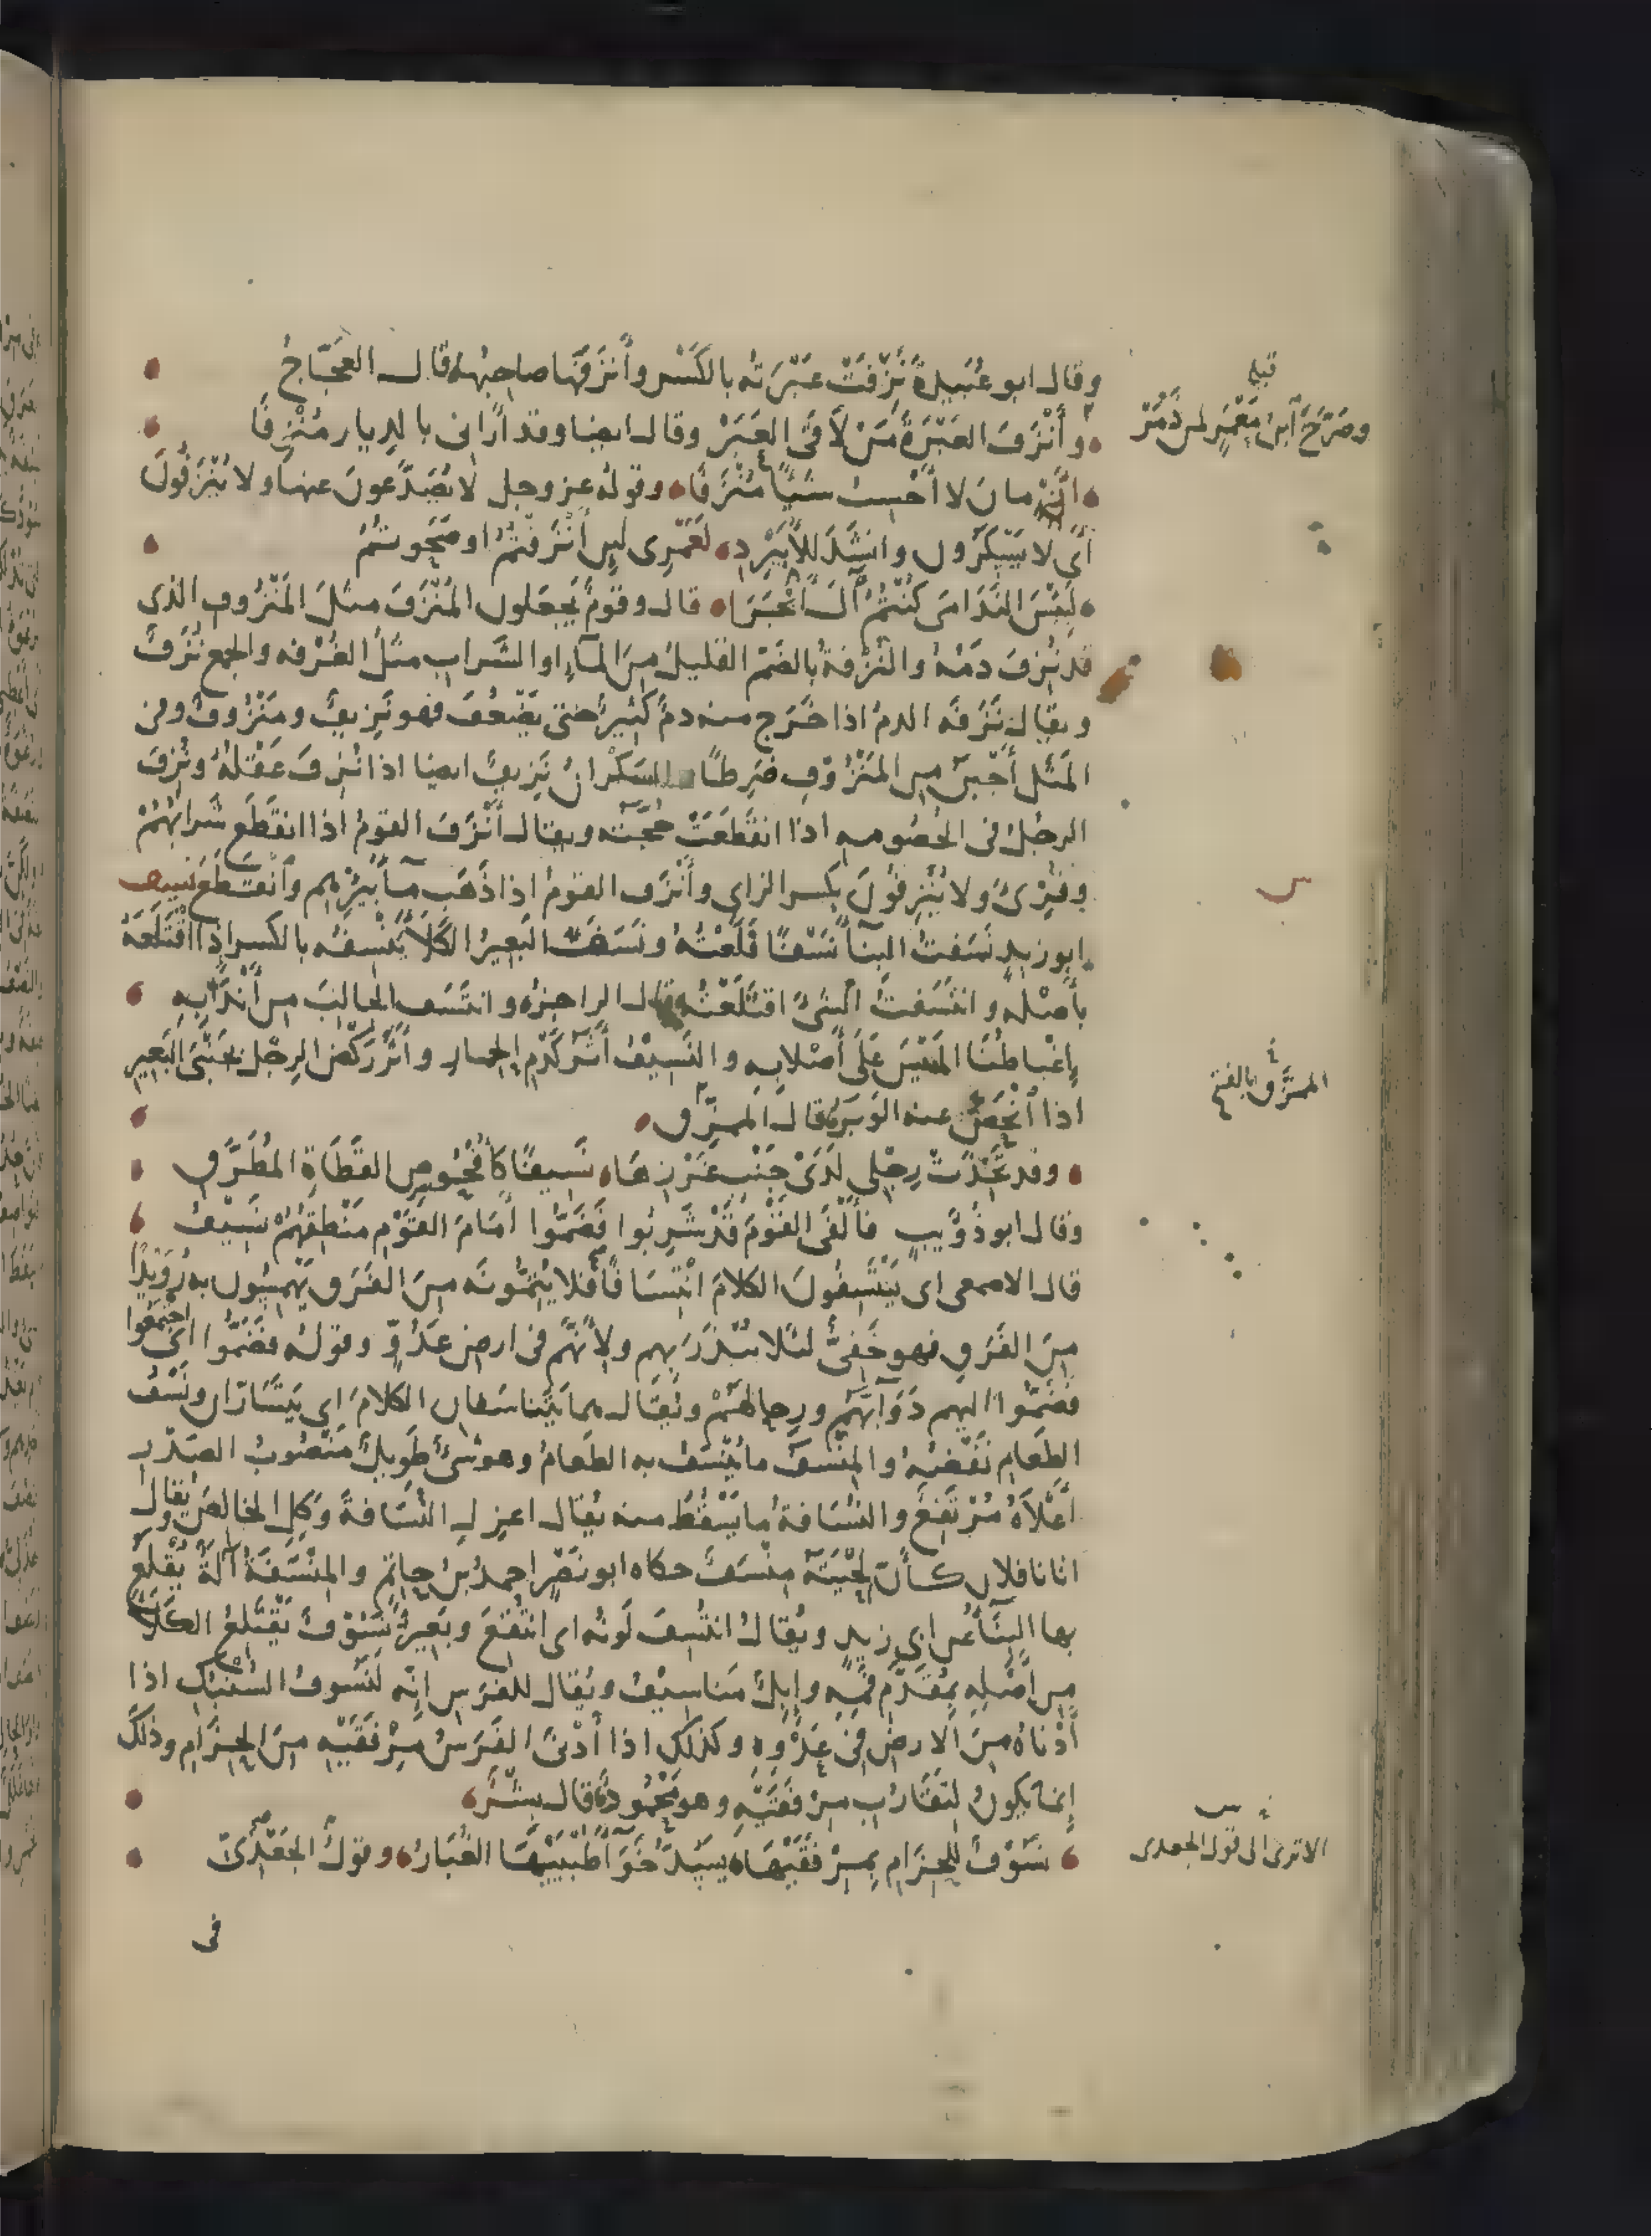 وقال ابو عُبَيدةَ نَزِفَتْ عَبْرَتُه بالكَسْر وأَنزَفَها صاحِبُها قال العَجّاجُ
قبله
وصَرَّحَ ابنُ مَعْمَرٍ لمن ذَمَرْ
وأَنْزَفَ العَبْرَةَ مَنْ لَاقَى العَبَرْ وقال ايضا وقد أَرانى بالدِيار مُنْزِفَا
أَزْمانَ لا أَحْسِبُ شيئًا مُنْزَفَا وقولُه عز وجل لا يُصَدَّعونَ عنها ولا يُنْزَفُونَ
أى لا يَسْكَرون وانشَدَ للأُبَيْرِدِ لَعَمْرِى لَئِن أَنْزَفْتُمُ او صَحَوتُمُ
لَبِئْسَ النَدَامَى كُنْتُمُ آلَ أَبْجَرَا قال وقومٌ يجعَلون المُنْزِفَ مثلَ المَنْزُوفِ الذى
قد نُزِفَ دَمُهُ والنُزْفةُ بالضَمّ القليلُ مِنَ الماءِ او الشَرابِ مثلُ الغُرْفه والجمع نُزَفٌ
ويقال نَزَفَه الدمُ اذا خَرَج منه دمٌ كَثِيرٌ حتى يَضْعُفَ فهو نَزِيفٌ ومَنْزُوفٌ وفى
المَثَل أَجْبَنُ مِن المَنْزُوفِ ضَرِطًا والسَكْرانُ نَزِيفٌ ايضا اذا نُزِفَ عَقْلُهُ ونُزِفَ
الرجُلُ فى الخُصُومه اذا انقَطَعَتْ حُجَّتُه ويقال أَنْزَفَ القومُ اذا انقَطَع شَرابُهُمْ
وقُرِئَ ولا يُنْزِفُونَ بكسر الزاى وأَنْزَف القومُ اذا ذَهَب ماءُ بِئْرِهِم وانقَطَع نسف
ابو زيدٍ نَسَفتُ البِناءَ نَسْفًا قَلَعْتُهُ ونَسَفَ البَعيرُ الكَلَأَ يَنْسِفُه بالكسر اذا اقْتَلَعَهُ
بأَصْلِه وانتَسَفتُ الشىءَ اقتَلَعْتُه قال الراجزُ وانتَسَف الجالِبَ من أَنْدَابِهِ
إغْباطُنَا المَيْسَ عَلَى أَصْلابِهِ والنَسِيْفُ أَثَرُ كَدْمِ الحِمارِ وأَثَرُ رَكْضِ الرِجْلِ بجَنْبَىِ البَعِيرِ
اذا انْحَصَّ عنه الوَبَرُ قال المُمَزَّقُ
الممزَّق بالفتح
وقد تَخِذَتْ رِجْلِى لَدَى جَنْبِ غَرْزِهَا نَسِيفًا كأُفْحُوصِ القَطَاةِ المُطَرِّقِ
وقال ابو ذُؤَيبٍ فأَلْفَى القَوْمَ قَدْ شَرِبُوا فَضَمُّوا أَمَامَ القَوْمِ مَنْطِقُهُمْ نَسِيْفُ
قال الاصمعى اى يَنْتَسِفُونَ الكلامَ انْتِسَافًا فلا يُتِمُّونَه مِنَ الفَرَقِ يَهْمِسُون به رُوَيْدًا
مِنَ الفَرَقِ فهو خَفِىٌّ لئلا يُنْذَرَ بهم ولأَنَّهم فى ارضِ عَدُوٍّ وقولُه فضَمُّوا اى اجتَمَعُوا
فضَمُّوا اليهم دَوَابَّهُم ورِحالَهُمْ ويُقال هما يَتَناسَفانِ الكلامَ اى يَتَسَارّانِ ونَسْفُ
الطَعامِ نَفْضُهُ والمِنْسَفُ ما يُنْسَفُ به الطعامُ وهو شىءٌ طَوِيلٌ مَنْصُوبُ الصَدْرِ
أَعْلَاهُ مُرْتَفِعٌ والنُسَافةُ ما يَسْقُطُ منه يُقال اعزِلِ النُسَافةَ وكُلِ الخالِصَ ويقال
اتانا فلان كأَنّ لِحْيَتَهُ مِنْسَفٌ حكاه ابو نَصْرٍ احمدُ بنُ حاتِمٍ والمِنْسَفَةُ آلَةٌ يُقْلَعُ
بها البِنَاءُ عن ابى زيدٍ ويُقالُ انتُسِفَ لَونُه اى انْتُقِعَ وبَعِيرٌ نَسُوْفٌ يَقْتَلِعُ الكَلَأَ
مِن أَصْلِه بمُقَدَّمِ فَمِه وإبِلٌ مَناسِيْفُ ويُقال للفَرَسِ انّه لَنَسُوفُ السُنْبُكِ اذا
أَدْناهُ مِنَ الارضِ فى عَدْوِهِ وكذلك اذا أَدْنَى الفَرَسُ مِرْفَقَيْهِ مِنَ الحِزَامِ وذلك
إنما يكونُ لِتَقَارُبِ مِرْفَقَيْهِ وهو مَحْمُودٌ قال بِشْرٌ
نَسُوْفٌ للحِزَامِ بمِرْفَقَيْهَا يَسُدُّ خَوَاءَ طُبْيَيْهَا الغُبَارُ وقولُ الجَعْدِىّ
الا ترى الى قول الجعدى
فى